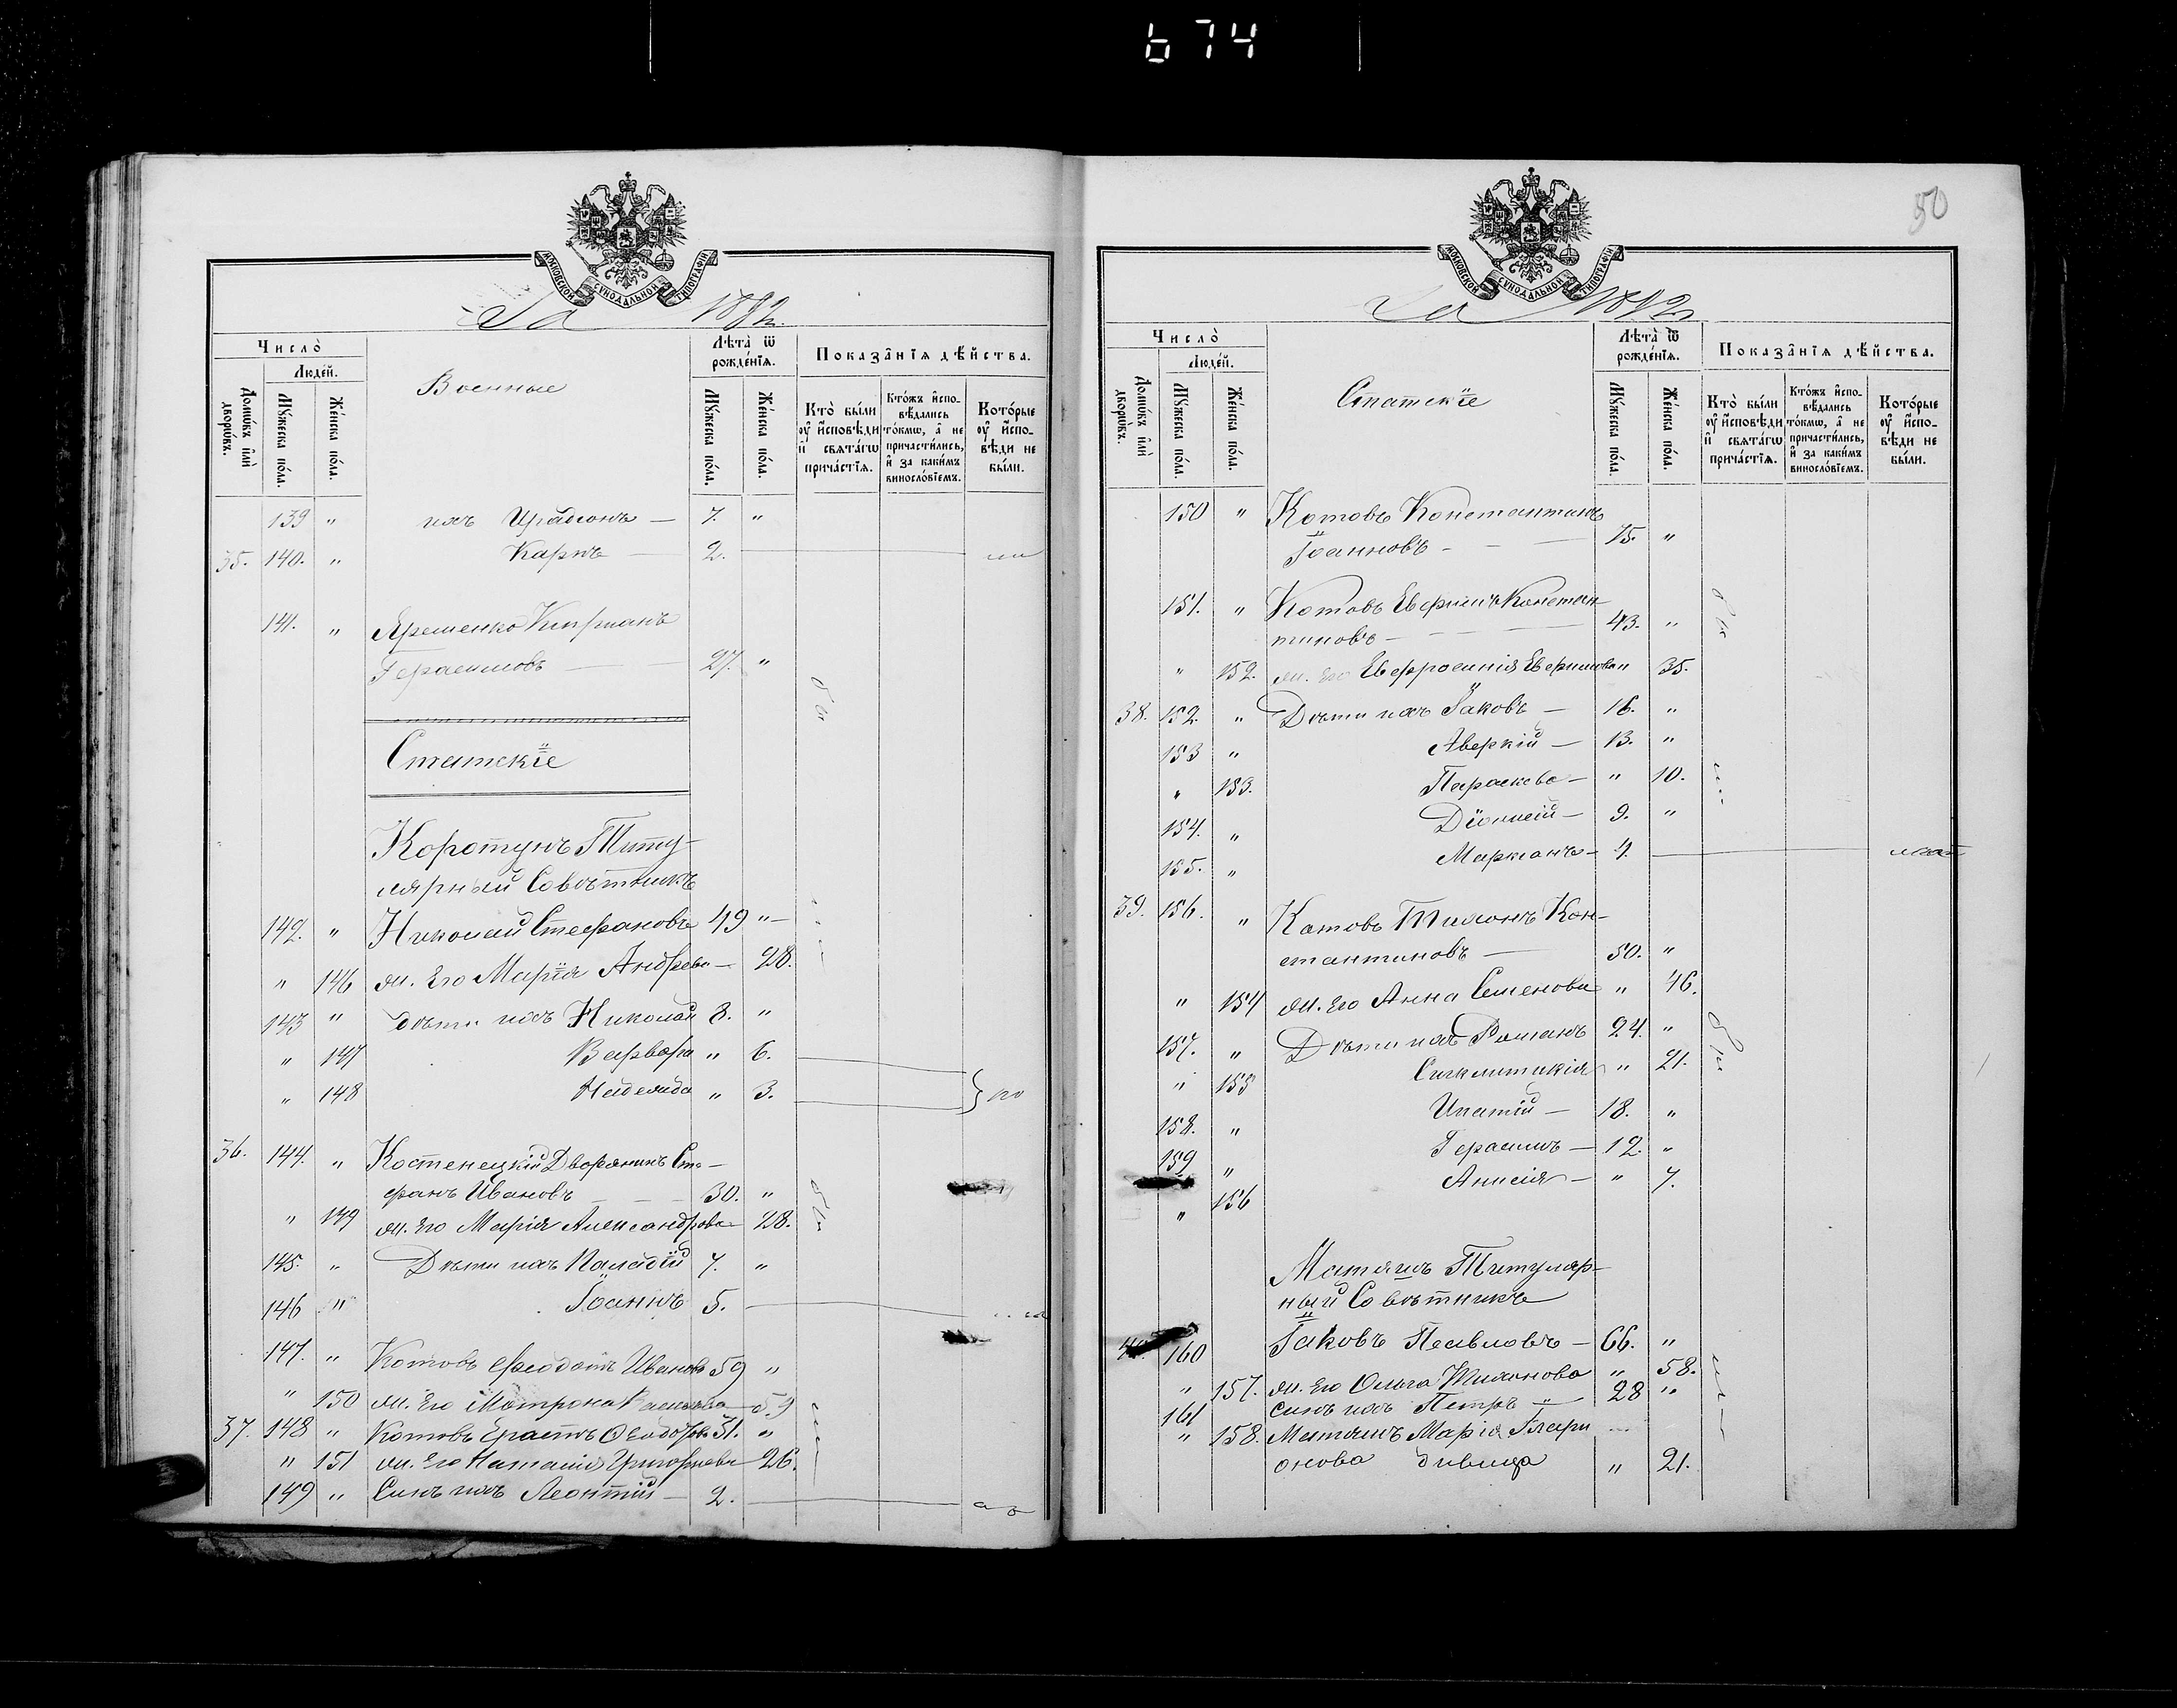 674
МОСКОВСКОЙ СѴНОДАЛЬНОЙ ТИПОГРАФІИ
За 1892
Число̀
Людей.
Домѡвъ и҆лѝ дворѡвъ.
Мꙋжеска по́ла.
Же́нска по́ла.
Военные
Лѣта̀ ѿ рожде́нїѧ.
Мꙋжеска по́ла.
Же́нска по́ла.
Показа̂нїѧ дѣ́йства.
Кто̀ бы́ли оу҆ и҆́сповѣди и҆ свѧта́гѡ прича́стїѧ.
Кто́жъ и҆спо-вѣ́дались то́кмѡ, а҆ не причасти́лись, и҆ за каки́мъ винослѡ́вїемъ.
Кото́рые оу҆ и҆́спо-вѣди не бы́ли.
139 " ихъ Иродіонъ — 7. "
35. 140. " Карпъ — 2.
141. " Яременко Кипріанъ
Герасимовъ — — 27. "
Статскіе
Коротунъ Титу-
лярный Совѣтникъ
142. " Николай Стефановъ 49 "
" 146 ж. Его Марія Андреева — 28.
143 " дѣти ихъ Николай 8. "
" 147 Варвара " 6.
" 148 Надежда " 3.
36. 144. " Костенецкій Дворянинъ Сте-
фанъ Ивановъ — — 30. "
" 149 ж. Его Марія Александрова 28.
145. " Дѣти ихъ Паладій 7. "
146 " Іоаннъ 5.
147. " Котовъ Феодотъ Ивановъ 59 "
" 150 ж. Его Матрона 59
37. 148 " Котовъ Ерастъ Ѳеодотовъ 31. "
" 151 ж. Его Наталія Григорьева 26.
149 " Сынъ ихъ Леонтій — 2.
50
МОСКОВСКОЙ СѴНОДАЛЬНОЙ ТИПОГРАФІИ
За 1892
Число̀
Людей.
Домѡвъ и҆лѝ дворѡвъ.
Мꙋжеска по́ла.
Же́нска по́ла.
Статскіе
Лѣта̀ ѿ рожде́нїѧ.
Мꙋжеска по́ла.
Же́нска по́ла.
Показа̂нїѧ дѣ́йства.
Кто̀ бы́ли оу҆ и҆́сповѣди и҆ свѧта́гѡ прича́стїѧ.
Кто́жъ и҆спо-вѣ́дались то́кмѡ, а҆ не причасти́лись, и҆ за каки́мъ винослѡ́вїемъ.
Кото́рые оу҆ и҆́спо-вѣди не бы́ли.
150 " Котовъ Константинъ
Іоанновъ — — — 75. "
151. " Котовъ Евфимъ Констан-
тиновъ — — — 43. "
" 152. ж. Его Евфросинія Евфимова " 35.
38. 152. " Дѣти ихъ Іаковъ — 16. "
153 " Аверкій — 13. "
" 153. Параскева — " 10.
154. " Діонисій — 9. "
155. " Маркіанъ — 4.
39. 156. " Котовъ Тимонъ Кон-
стантиновъ — 50. "
" 154 ж. Его Анна Семенова " 46.
157. " Дѣти ихъ Романъ 24. "
" 155 Сигклитикія " 21.
158. " Ипатій — 18. "
159 " Герасимъ — 12. "
" 156 Анисія — " 7.
Матяшъ Титуляр-
ный Совѣтникъ
40. 160 Іаковъ Павловъ — 66. "
" 157. ж. Его Ольга Тимонова " 58.
161 сынъ ихъ Петръ — 28 "
" 158. Матяшъ Марія Илари
онова дѣвица " 21.